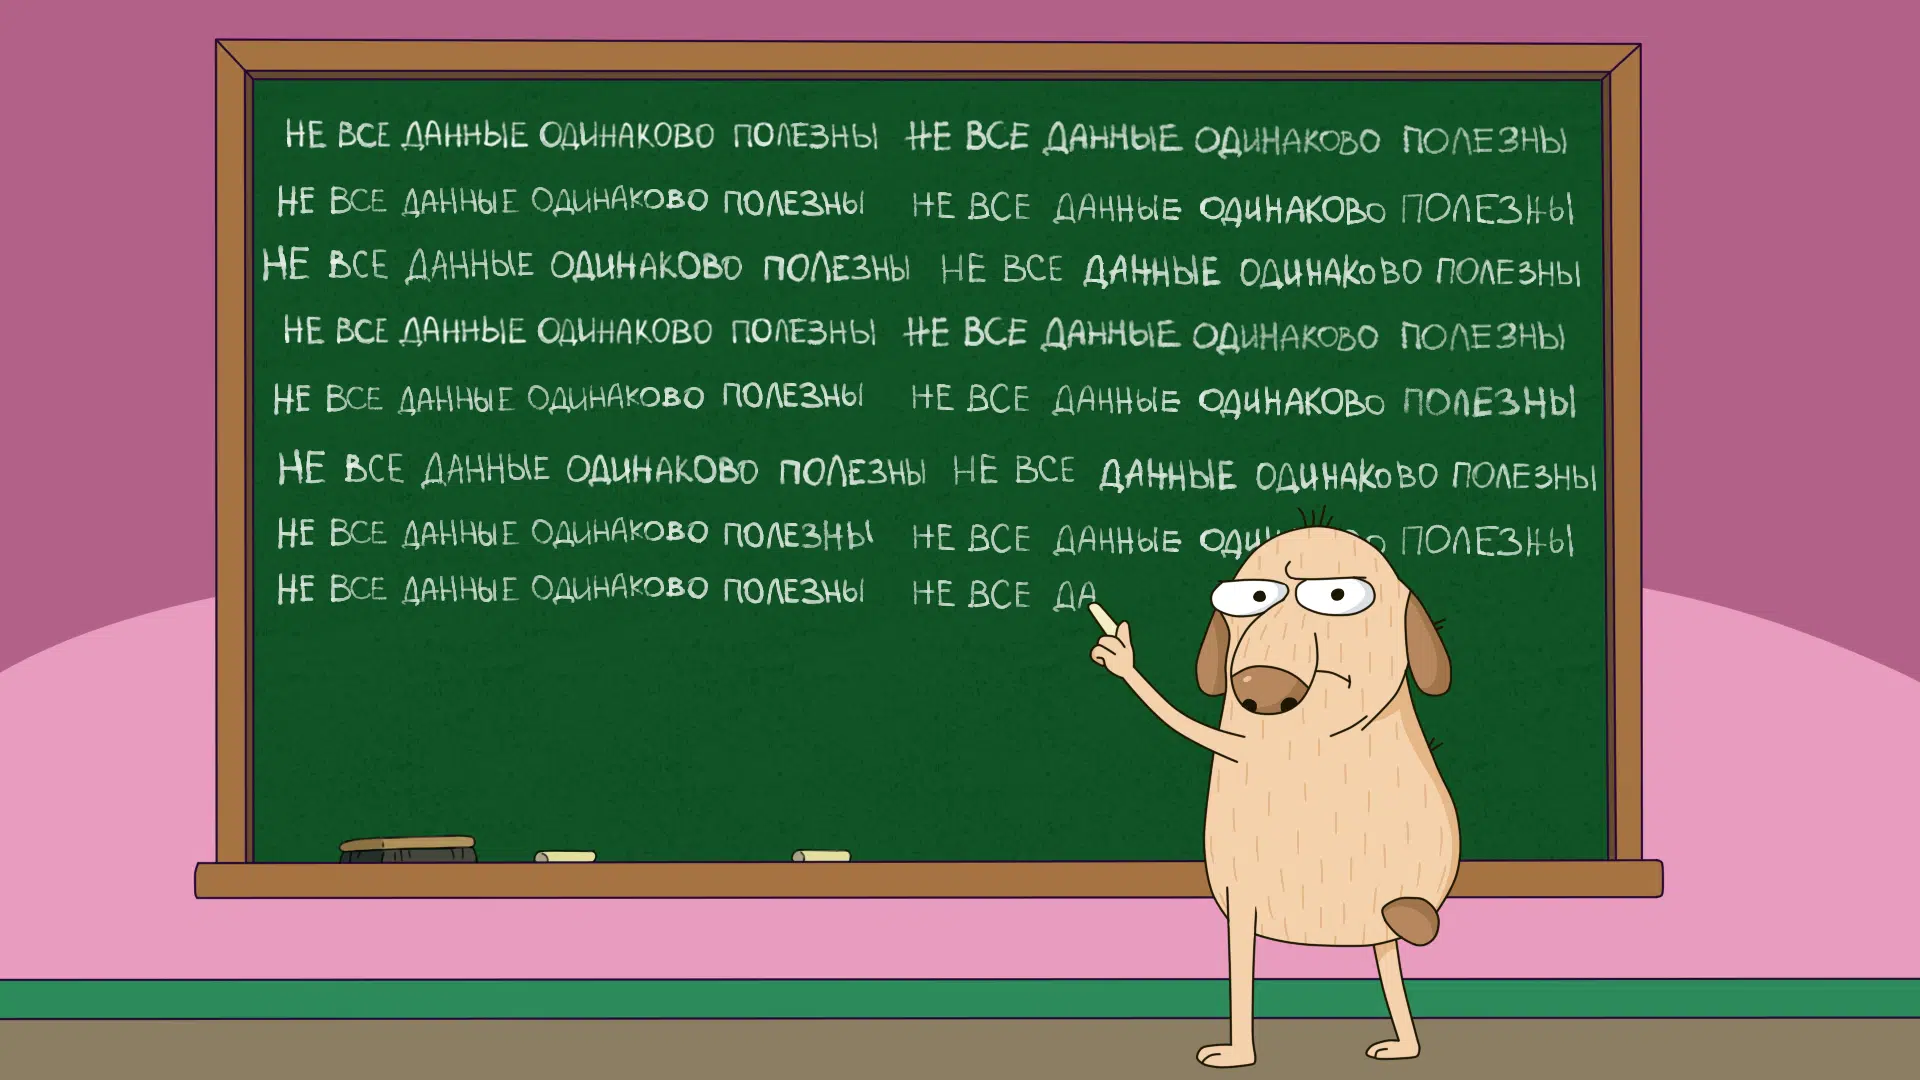 НЕ ВСЕ ДАННЫЕ ОДИНАКОВО ПОЛЕЗНЫ НЕ ВСЕ ДАННЫЕ ОДИНАКОВО ПОЛЕЗНЫ
НЕ ВСЕ ДАННЫЕ ОДИНАКОВО ПОЛЕЗНЫ НЕ ВСЕ ДАННЫЕ ОДИНАКОВО ПОЛЕЗНЫ
НЕ ВСЕ ДАННЫЕ ОДИНАКОВО ПОЛЕЗНЫ НЕ ВСЕ ДАННЫЕ ОДИНАКОВО ПОЛЕЗНЫ
НЕ ВСЕ ДАННЫЕ ОДИНАКОВО ПОЛЕЗНЫ НЕ ВСЕ ДАННЫЕ ОДИНАКОВО ПОЛЕЗНЫ
НЕ ВСЕ ДАННЫЕ ОДИНАКОВО ПОЛЕЗНЫ НЕ ВСЕ ДАННЫЕ ОДИНАКОВО ПОЛЕЗНЫ
НЕ ВСЕ ДАННЫЕ ОДИНАКОВО ПОЛЕЗНЫ НЕ ВСЕ ДАННЫЕ ОДИНАКОВО ПОЛЕЗНЫ
НЕ ВСЕ ДАННЫЕ ОДИНАКОВО ПОЛЕЗНЫ НЕ ВСЕ ДАННЫЕ ПОЛЕЗНЫ
НЕ ВСЕ ДАННЫЕ ОДИНАКОВО ПОЛЕЗНЫ НЕ ВСЕ ДА